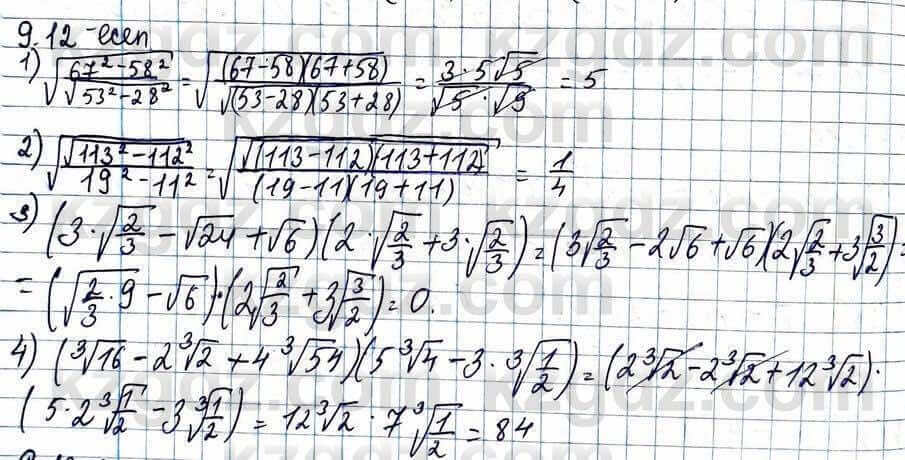 9.12-есеп
1) √((67²-58²)/√(53²-28²)) = √(((67-58)(67+58))/√((53-28)(53+28))) = (3·5√5)/(√5·√9) = 5
2) √(√(113²-112²)/(19²-11²)) = √(√((113-112)(113+112))/((19-11)(19+11))) = 1/4
3) (3·√(2/3) - √24 + √6)(2·√(2/3) + 3·√(2/3)) = (3√(2/3) - 2√6 + √6)(2√(2/3) + 3√(3/2)) =
= (√(2/3·9) - √6)·(2√(2/3) + 3√(3/2)) = 0.
4) (∛16 - 2∛2 + 4∛54)(5∛4 - 3·∛(1/2)) = (2∛2 - 2∛2 + 12∛2)·
(5·2∛(1/2) - 3∛(1/2)) = 12∛2·7∛(1/2) = 84
kzgdz.com